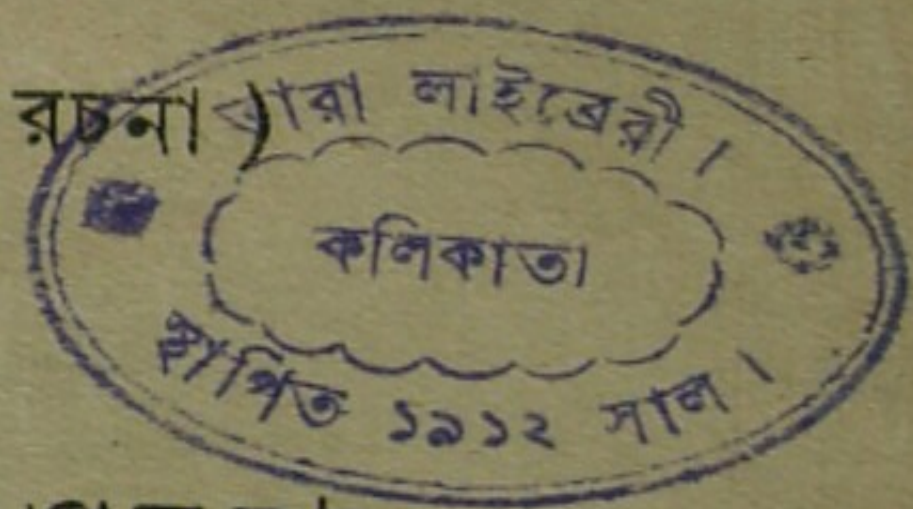 রচনা )
তারা লাইব্রেরী।
কলিকাতা
স্থাপিত ১৯১২ সাল।